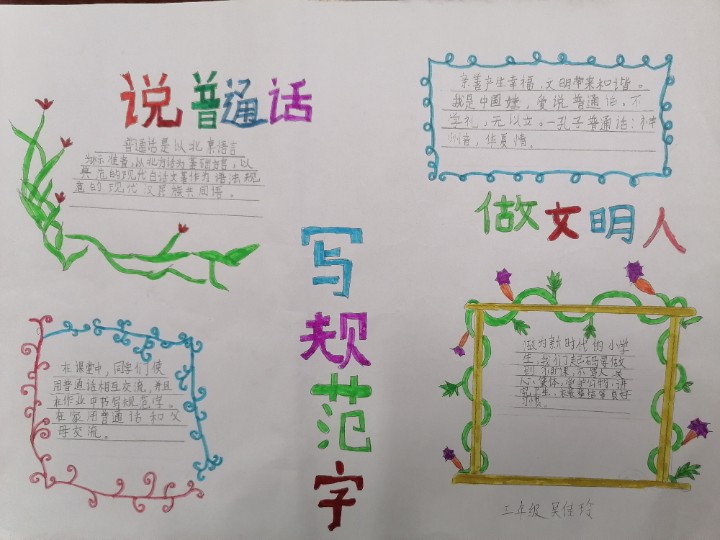 说普通话
普通话是以北京语言
为标准音，以北方话为基础方言，以
典范的现代白话文著作为语法规
范的现代汉民族共同语。
亲善产生幸福，文明带来和谐。
我是中国娃，会说普通话，不
学礼，无以立。一孔子普通话：神
州音，华夏情。
做文明人
写规范字
在课堂中，同学们使
用普通话相互交流，并且
在作业中书写规范字。
在家用普通话和父
母交流。
做为新时代的小学
生，我们起码要做
到
心集体，爱护公物，讲
良好
三年级 吴佳玲